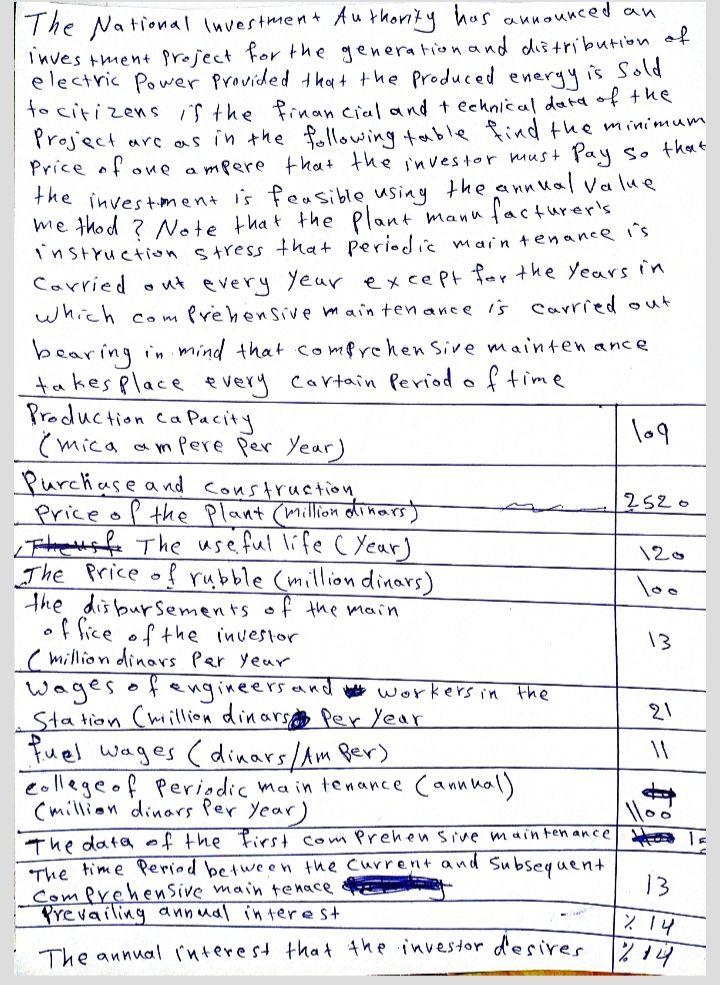 The National Investment Authority has announced an
investment project for the generation and distribution of
electric Power Provided that the Produced energy is Sold
to citizens if the financial and technical data of the
Project are as in the following table find the minimum
Price of one ampere that the investor must Pay so that
the investment is feasible using the annual value
method? Note that the plant manufacturer's
instruction stress that periodic maintenance is
Carried out every Year except for the Years in
which comprehensive maintenance is carried out
bearing in mind that comprehensive maintenance
takes place every cartain Period of time
Production capacity
(mica ampere per Year) 109
Purchase and construction
Price of the Plant (million dinars) 2520
The useful life (Year) 120
The Price of rubble (million dinars) 100
the disbursements of the main
office of the investor
(million dinars Per Year 13
Wages of engineers and workers in the
Station (million dinars Per Year 21
fuel wages (dinars/Amper) 11
college of Periodic maintenance (annual)
(million dinars Per Year) 1100
The data of the first comprehensive maintenance
The time Period between the current and Subsequent
comprehensive maintenace 13
Prevailing annual interest % 14
The annual interest that the investor desires % 14